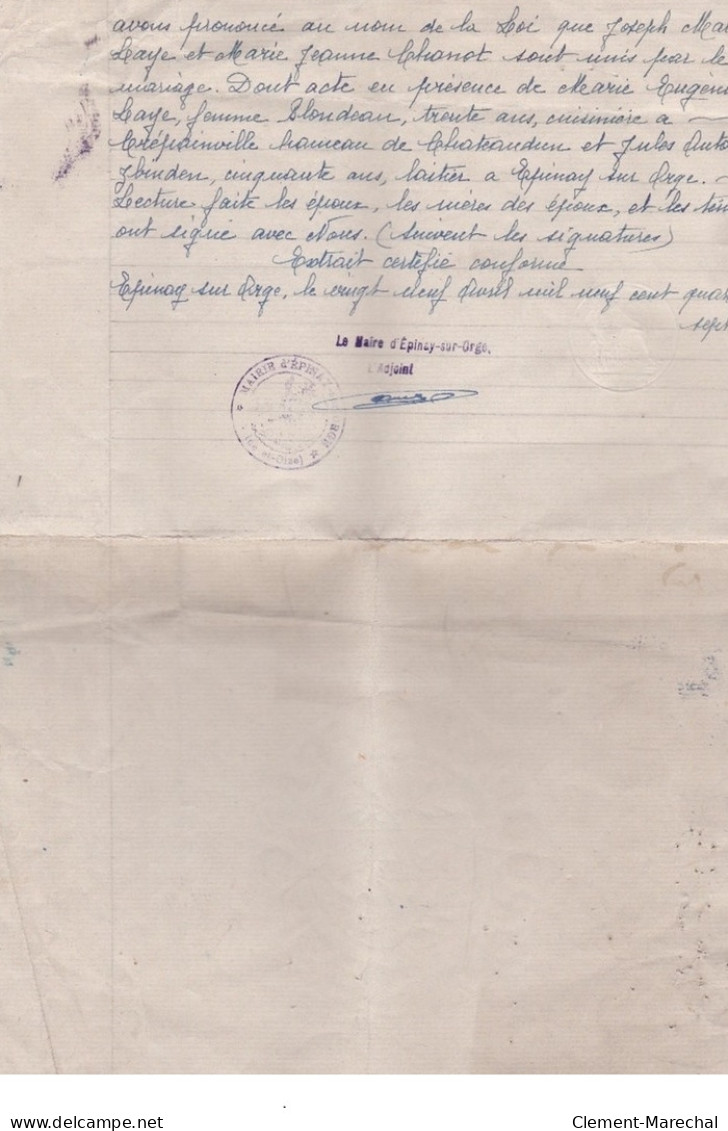 avons prononcé au nom de la Loi que Joseph Mar
Laye et Marie Jeanne Chanot sont unis par le
mariage. Dont acte en présence de Marie Eugén
Laye, femme Blondeau, trente ans, cuisinière a
Crépainville hameau de Chateaudun et Jules Anto
Zbinden, cinquante ans, laitier a Epinay sur Orge. —
Lecture faite les époux, les mères des époux, et les tém
ont signé avec Nous. (Suivent les signatures)
Extrait certifié conforme
Epinay sur Orge, le vingt neuf Avril mil neuf cent quar
sept
Le Maire d'Épinay-sur-Orge,
L'Adjoint
MAIRIE d'ÉPINAY
(S. et-Oise)
delcampe.net
Clement-Marechal